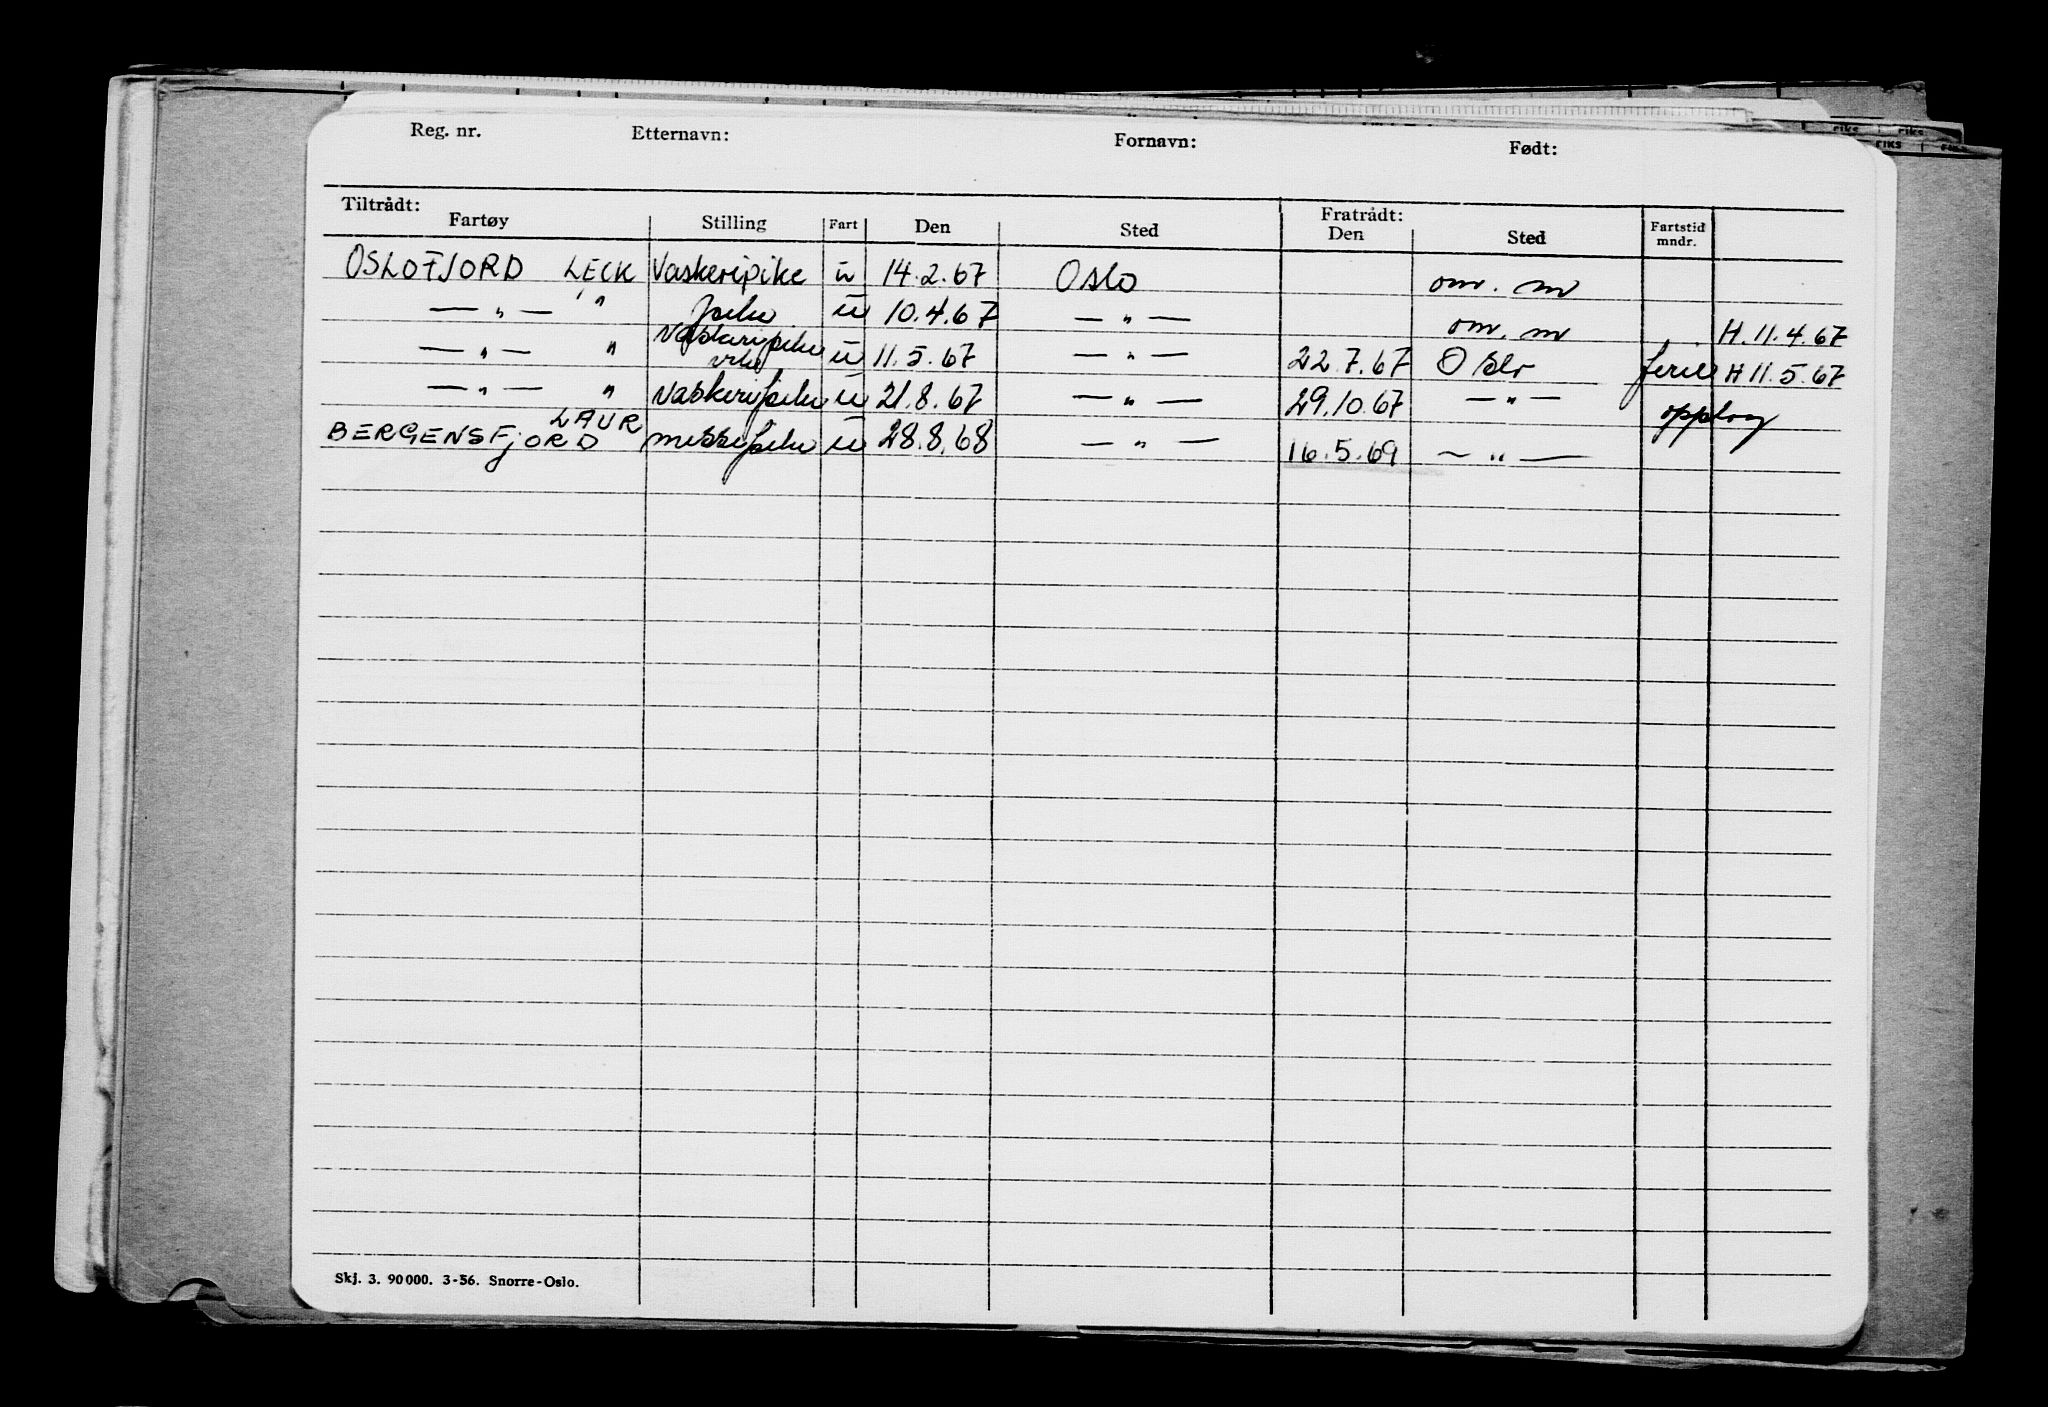 Reg. nr. Etternavn: Fornavn: Født:
Tiltrådt: Fratrådt:
Fartøy Stilling Fart Den Sted Den Sted Fartstid mndr.
OSLOFJORD LECK Vaskeripike u 14.2.67 Oslo om. m
— " — " u 10.4.67 — " — om. m H. 11.4.67
— " — " Vaskeripike u 11.5.67 — " — 22.7.67 Oslo ferie H 11.5.67
— " — " vaskeripike u 21.8.67 — " — 29.10.67 — " — opplag
BERGENSFJORD LAUR messepike u 28.8.68 — " — 16.5.69 — " —
Skj. 3. 90000. 3-56. Snorre-Oslo.